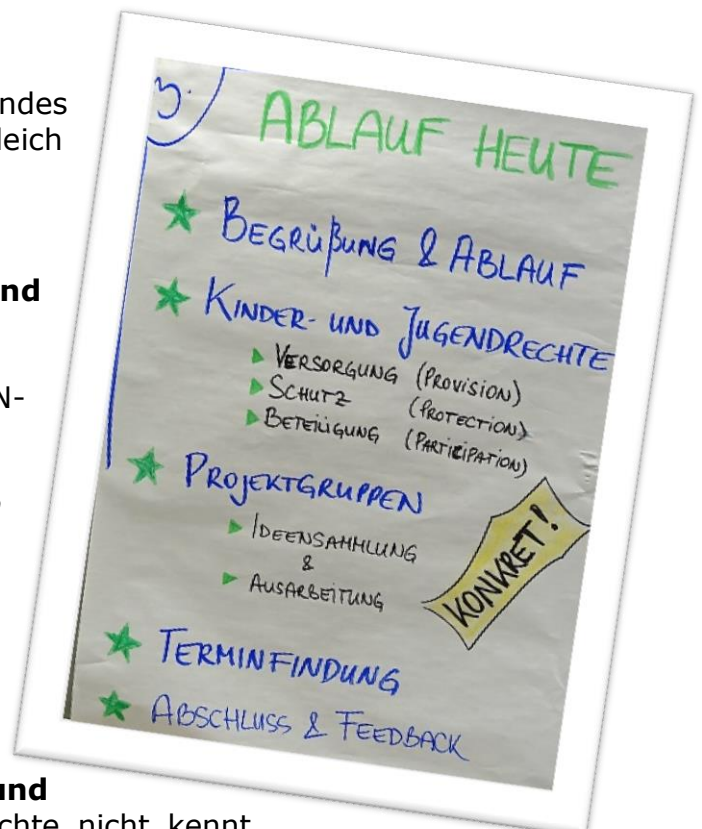 ndes
leich
nd
N-
3.
ABLAUF HEUTE
BEGRÜßUNG & ABLAUF
KINDER- UND JUGENDRECHTE
VERSORGUNG (PROVISION)
SCHUTZ (PROTECTION)
BETEILIGUNG (PARTICIPATION)
PROJEKTGRUPPEN
IDEENSAMMLUNG
&
AUSARBEITUNG
KONKRET!
TERMINFINDUNG
ABSCHLUSS & FEEDBACK
und
chte nicht kennt